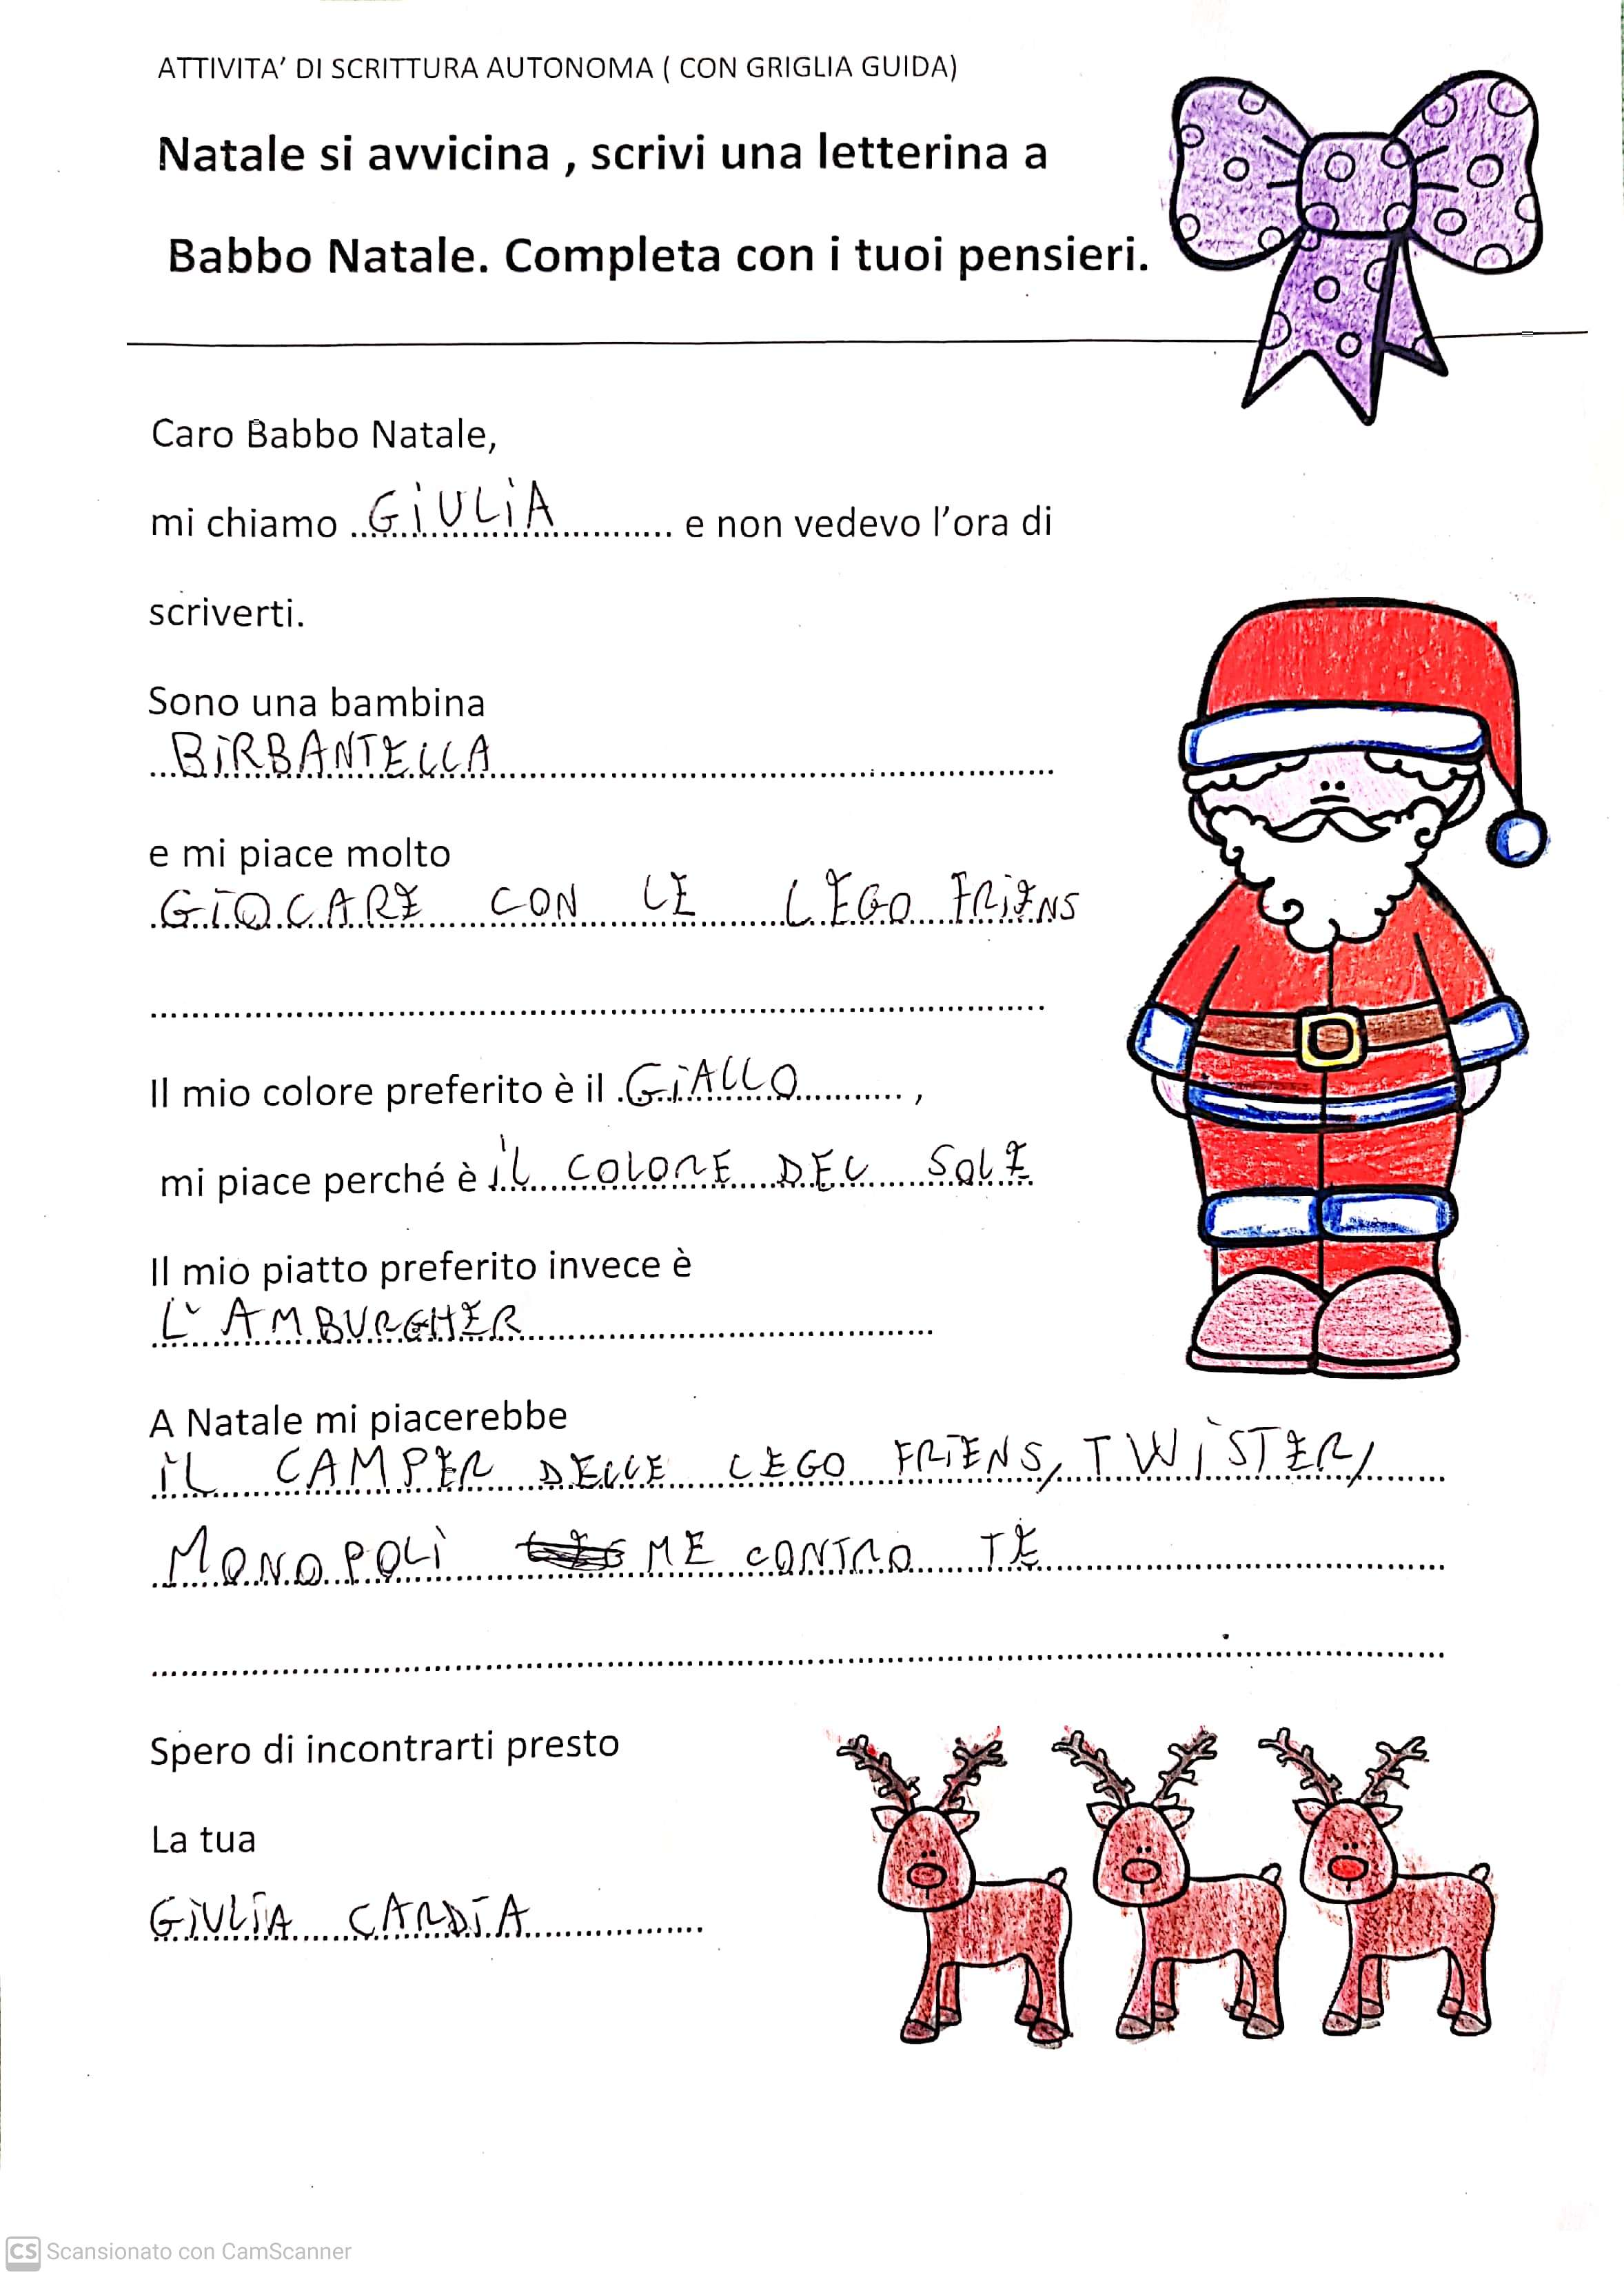 ATTIVITA' DI SCRITTURA AUTONOMA ( CON GRIGLIA GUIDA)
Natale si avvicina , scrivi una letterina a
Babbo Natale. Completa con i tuoi pensieri.
Caro Babbo Natale,
mi chiamo GIULIA e non vedevo l'ora di
scriverti.
Sono una bambina
BIRBANTELLA
e mi piace molto
GIOCARE CON LE LEGO FRIENS
Il mio colore preferito è il GIALLO ,
mi piace perché è IL COLORE DEL SOLE
Il mio piatto preferito invece è
L'AMBURGHER
A Natale mi piacerebbe
IL CAMPER DELLE LEGO FRIENS, TWISTER,
MONOPOLI ME CONTRO TE
Spero di incontrarti presto
La tua
GIULIA CARDIA
CS Scansionato con CamScanner